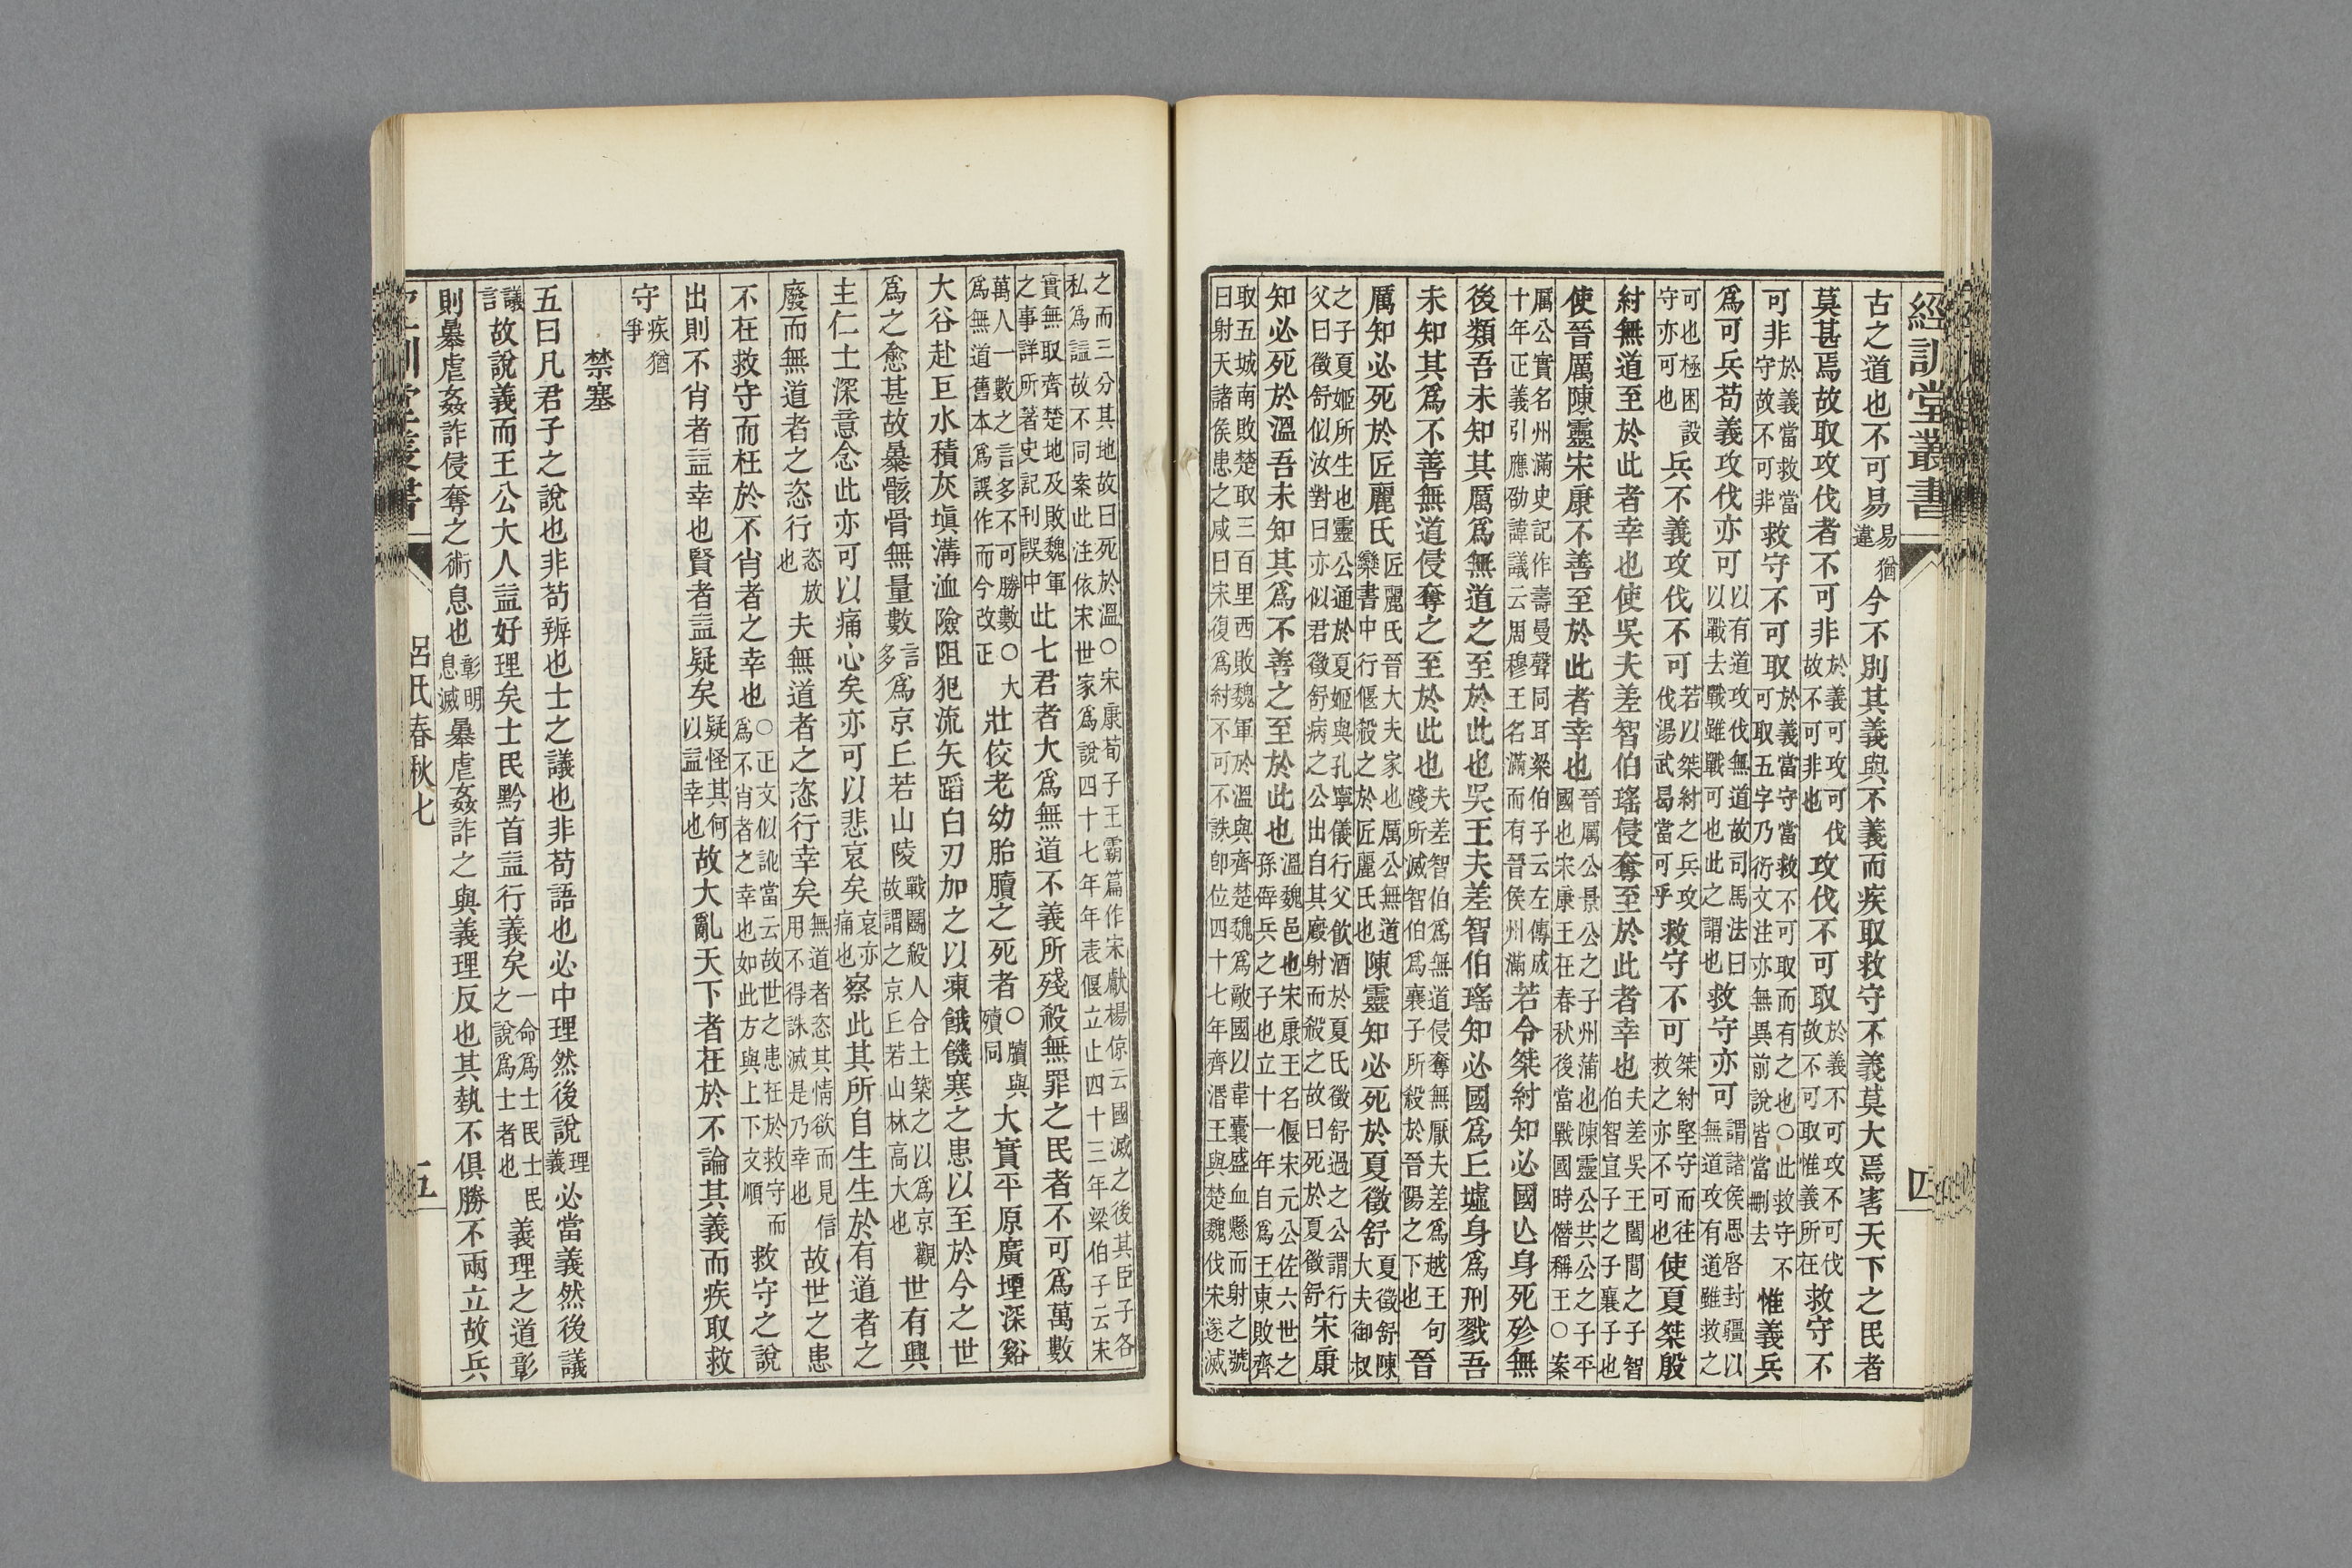 經訓堂叢書
古之道也不可易易猶違今不別其義與不義而疾取救守不義莫大焉害天下之民者
莫甚焉故取攻伐者不可非於義可攻可伐故不可非也攻伐不可取於義不可攻不可伐故不可取惟義所在救守不
可非於義當救當守故不可非救守不可取於義當守當救不可取而有之也○此救守不可取五字乃衍文注亦無異前說皆當刪去惟義兵
爲可兵苟義攻伐亦可以有道攻伐無道故司馬法曰以戰去戰雖戰可也此之謂也救守亦可謂諸侯思啓封疆以無道攻有道雖救之
可也極困設守亦可也兵不義攻伐不可若以桀紂之兵攻伐湯武曷當可乎救守不可桀紂堅守而往救之亦不可也使夏桀殷
紂無道至於此者幸也使吳夫差智伯瑤侵奪至於此者幸也夫差吳王闔閭之子智伯智宣子之子襄子也
使晉厲陳靈宋康不善至於此者幸也晉厲公景公之子州蒲也陳靈公共公之子平國也宋康王在春秋後當戰國時僭稱王○案
厲公實名州滿史記作壽曼聲同耳梁伯子云左傳成十年正義引應劭諱議云周穆王名滿而有晉侯州滿若令桀紂知必國亾身死殄無
後類吾未知其厲爲無道之至於此也吳王夫差智伯瑤知必國爲丘墟身爲刑戮吾
未知其爲不善無道侵奪之至於此也夫差智伯爲無道侵奪無厭夫差爲越王句踐所滅智伯爲襄子所殺於晉陽之下也晉
厲知必死於匠麗氏匠麗氏晉大夫家也厲公無道欒書中行偃殺之於匠麗氏也陳靈知必死於夏徵舒夏徵舒陳大夫御叔
之子夏姬所生也靈公通於夏姬與孔寧儀行父飲酒於夏氏徵舒過之公謂行父曰徵舒似汝對曰亦似君徵舒病之公出自其廄射而殺之故曰死於夏徵舒宋康
知必死於溫吾未知其爲不善之至於此也溫魏邑也宋康王名偃宋元公佐六世之孫辟兵之子也立十一年自爲王東敗齊
取五城南敗楚取三百里西敗魏軍於溫與齊楚魏爲敵國以韋囊盛血懸而射之號曰射天諸侯患之咸曰宋復爲紂不可不誅卽位四十七年齊湣王與楚魏伐宋遂滅
之而三分其地故曰死於溫○宋康荀子王霸篇作宋獻楊倞云國滅之後其臣子各私爲謚故不同案此注依宋世家爲說四十七年年表偃立止四十三年梁伯子云宋
實無取齊楚地及敗魏軍之事詳所著史記刊誤中此七君者大爲無道不義所殘殺無罪之民者不可爲萬數
萬人一數之言多不可勝數○大爲無道舊本爲誤作而今改正壯佼老幼胎䐬之死者○䐬與殰同大實平原廣堙深谿
大谷赴巨水積灰塡溝洫險阻犯流矢蹈白刃加之以凍餓饑寒之患以至於今之世
爲之愈甚故暴骸骨無量數言多爲京丘若山陵戰鬭殺人合土築之以爲京觀故謂之京丘若山林高大也世有興
主仁士深意念此亦可以痛心矣亦可以悲哀矣哀亦痛也察此其所自生生於有道者之
廢而無道者之恣行恣放也夫無道者之恣行幸矣無道者恣其情欲而見信用不得誅滅是乃幸也故世之患
不在救守而在於不肖者之幸也○正文似訛當云故世之患在於救守而爲不肖者之幸也如此方與上下文順救守之說
出則不肖者益幸也賢者益疑矣疑怪其何以益幸也故大亂天下者在於不論其義而疾取救
守疾猶爭
禁塞
五曰凡君子之說也非苟辨也士之議也非苟語也必中理然後說理義必當義然後議
議言故說義而王公大人益好理矣士民黔首益行義矣一命爲士民士民之說爲士者也義理之道彰
則暴虐姦詐侵奪之術息也彰明息滅暴虐姦詐之與義理反也其埶不俱勝不兩立故兵
呂氏春秋七
五